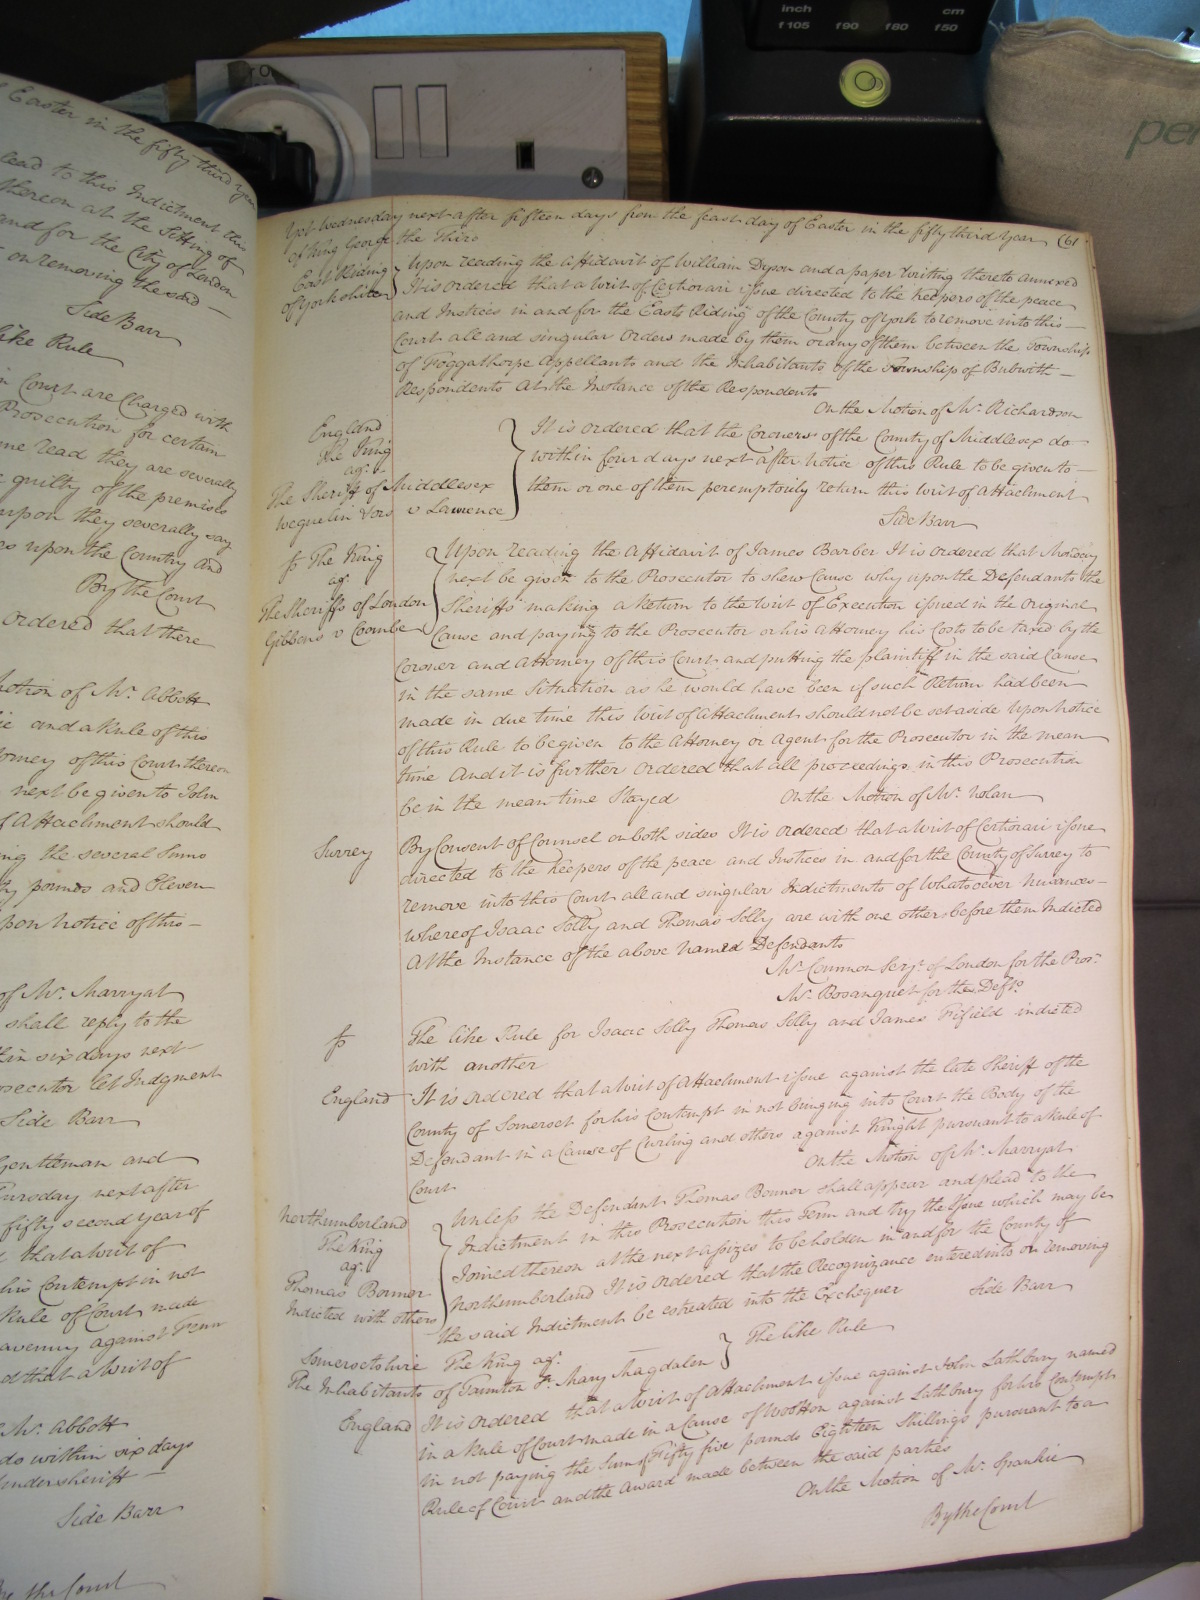 inch cm
f105 f90 f80 f50
per
Easter in the fifty third year
lead to this Indictment
thereon at the Sitting of
and for the City of London
on removing the said
Side Barr
like Rule
Court are Charged with
Prosecution for certain
me read they are severally
guilty of the premises
upon they severally say
upon the Country And
By the Court
ordered that there
Motion of Mr. Abbott
and a Rule of this
Attorney of this Court thereon
next be given to John
of Attachment should
the several Sums
pounds and Eleven
upon Notice of this
of Mr. Marryat
shall reply to the
in six days next
Prosecutor let Judgment
Side Barr
Gentleman and
Thursday next after
fifty second year of
that a Writ of
his Contempt in not
Rule of Court made
against
that a Writ of
Mr. Abbott
do within six days
Undersheriff
Side Barr
By the Court
Yet Wednesday next after fifteen days from the feast day of Easter in the fifty third Year (61
of King George the Third
East Riding
of Yorkshire
Upon reading the Affidavit of William Dyson and a paper Writing thereto annexed
It is ordered that a Writ of Certiorari issue directed to the Keepers of the peace
and Justices in and for the East Riding of the County of York to remove into this
Court all and singular Orders made by them or any of them between the Township
of Foggathorpe Appellants and the Inhabitants of the Township of Bubwith
Respondents At the Instance of the Respondents
On the Motion of Mr. Richardson
England
The King
agt.
The Sheriff of Middlesex
Weguelin & ors v Lawrence
It is ordered that the Coroners of the County of Middlesex do
within four days next after Notice of this Rule to be given to
them or one of them peremptorily return this Writ of Attachment
Side Barr
The King
agt.
The Sheriffs of London
Gibbons v Coombe
Upon reading the Affidavit of James Barber It is ordered that Monday
next be given to the Prosecutor to shew Cause why upon the Defendants the
Sheriffs making a Return to the Writ of Execution issued in the Original
Cause and paying to the Prosecutor or his Attorney his Costs to be taxed by the
Coroner and Attorney of this Court and putting the plaintiff in the said Cause
in the same Situation as he would have been if such Return had been
made in due time this Writ of Attachment should not be set aside Upon Notice
of this Rule to be given to the Attorney or Agent for the Prosecutor in the mean
time And it is further Ordered that all proceedings in this Prosecution
be in the mean time Stayed On the Motion of Mr. Nolan
Surrey
By Consent of Counsel on both sides It is ordered that a Writ of Certiorari issue
directed to the Keepers of the peace and Justices in and for the County of Surrey to
remove into this Court all and singular Indictments of Whatsoever Nuisances
whereof Isaac Solly and Thomas Solly are with one other before them Indicted
At the Instance of the above named Defendants
Mr. Common Serjt. of London for the Pros.
Mr. Bosanquet for the Defts.
The like Rule for Isaac Solly Thomas Solly and James Fifield indicted
with another
England
It is ordered that a Writ of Attachment issue against the late Sheriff of the
County of Somerset for his Contempt in not bringing into Court the Body of the
Defendant in a Cause of Curling and others against Knight pursuant to a Rule of
Court On the Motion of Mr. Marryat
Northumberland
The King
agt.
Thomas Bonner
Indicted with others
Unless the Defendant Thomas Bonner shall appear and plead to the
Indictment in this Prosecution this Term and try the Issue which may be
Joined thereon at the next Assizes to be holden in and for the County of
Northumberland It is Ordered that the Recognizance entered into on removing
the said Indictment be estreated into the Exchequer Side Barr
Somersetshire The King agt.
The Inhabitants of Taunton St. Mary Magdalen
The like Rule
England
It is ordered that a Writ of Attachment issue against John Lathbury named
in a Rule of Court made in a Cause of Wootton against Lathbury for his Contempt
in not paying the Sum of Fifty five pounds Eighteen Shillings pursuant to a
Rule of Court and the Award made between the said parties
On the Motion of Mr. Spankie
By the Court